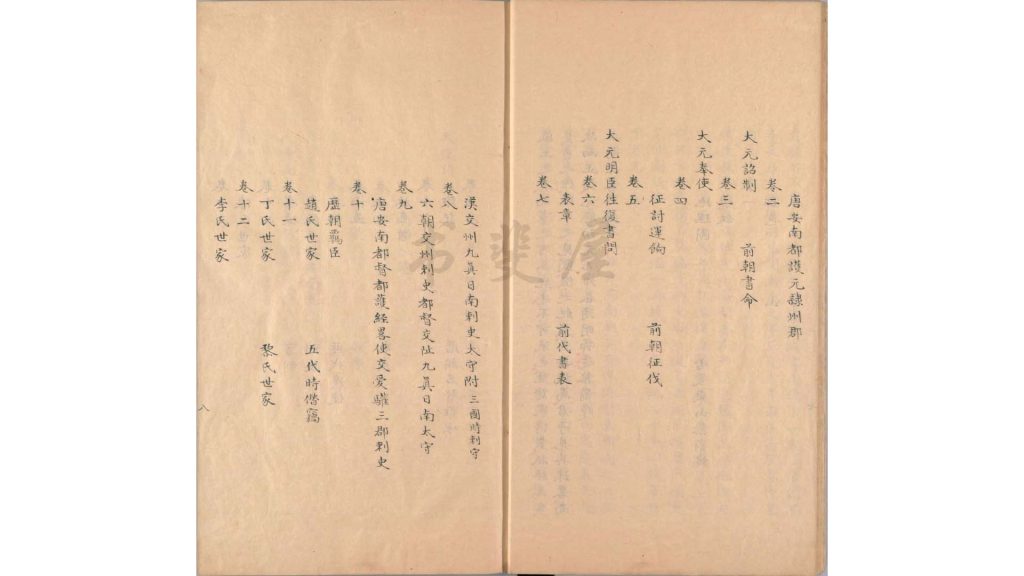 唐安南都護元隸州郡
卷二
大元詔制 前朝書命
卷三
大元奉使
卷四
征討運餉 前朝征伐
卷五
大元明臣徃復書問
卷六
表章 前代書表
卷七
漢交州九眞日南刺史太守附三國時刺守
卷八
六朝交州刺史都督交阯九眞日南太守
卷九
唐安南都督都護經畧使交愛驩三郡刺史
卷十
歷朝羈臣
趙氏世家 五代時僭竊
卷十一
丁氏世家 黎氏世家
卷十二
李氏世家
八
书斐屋